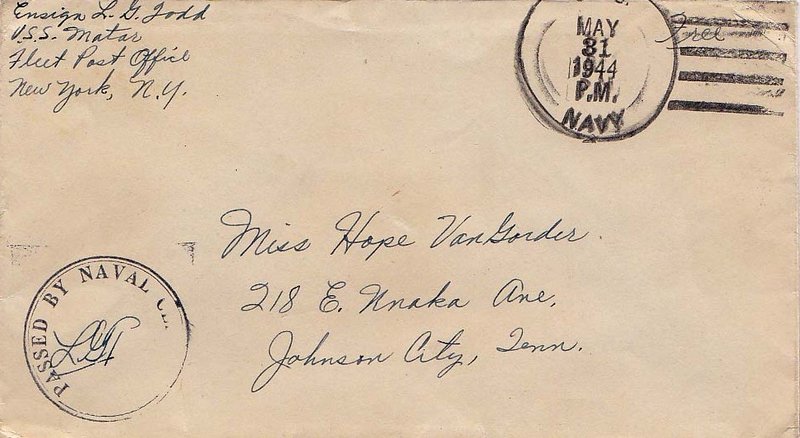 Ensign L. G. Todd
U.S.S. Matar
Fleet Post Office
New York, N.Y.
MAY
31
1944
P.M.
NAVY
Free
Miss Hope VanGorder
218 E. Unaka Ave.
Johnson City, Tenn.
PASSED BY NAVAL
LGT